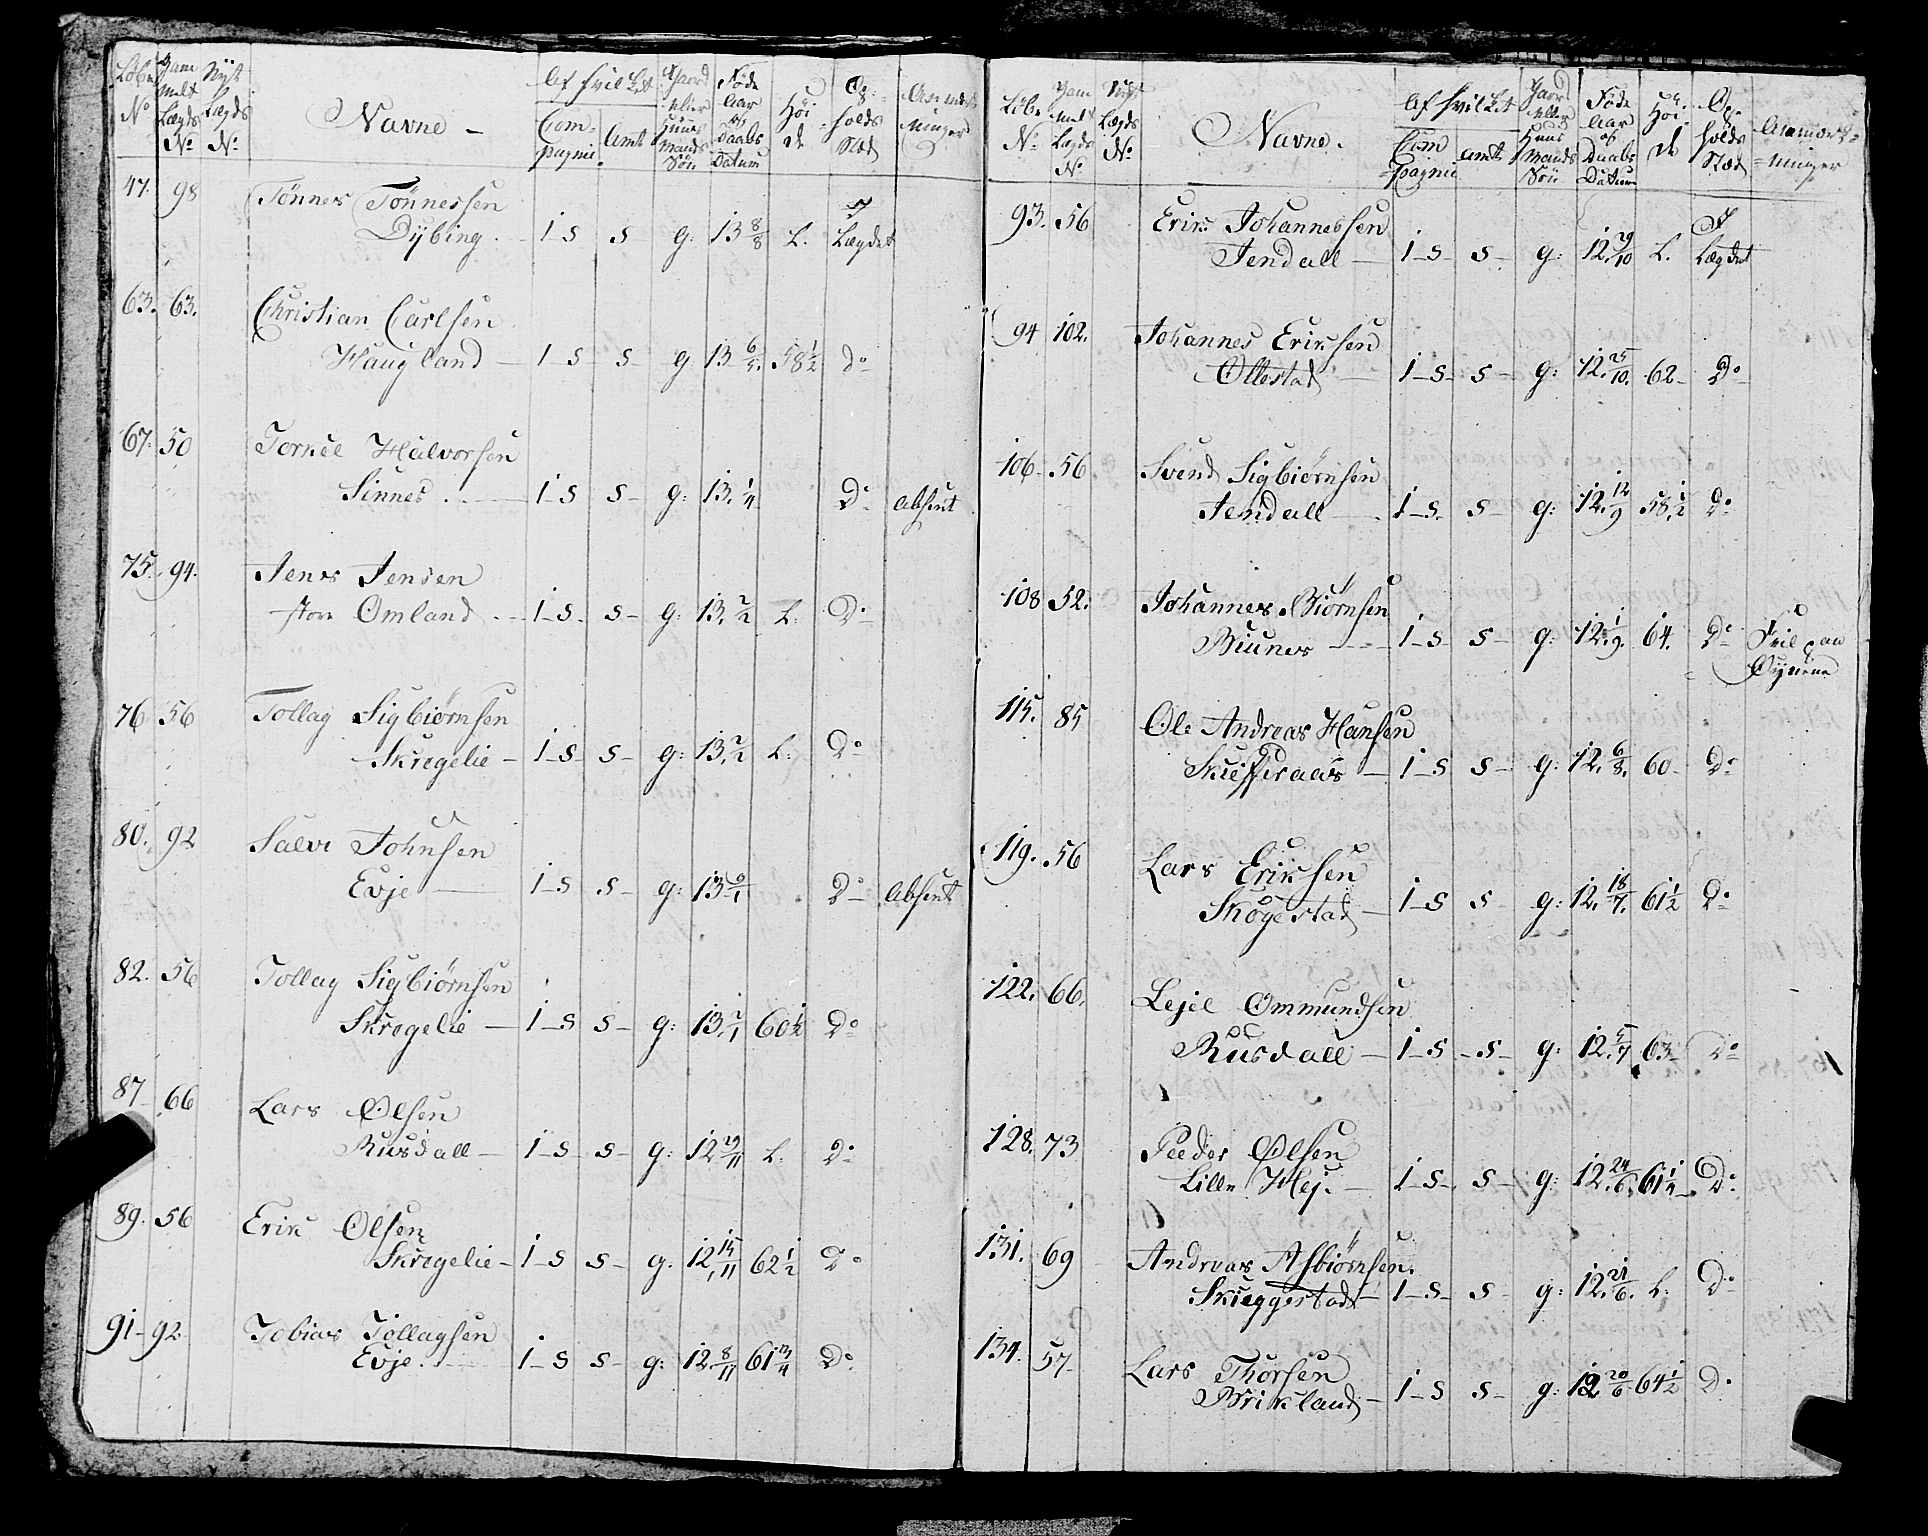 Løbe No | Gammelt Lægds No | Nyt Lægds No | Navne | Af hvilket Compagnie | Amt | Gaard eller Huusmands Søn | Føde Aar og Daabs Datum | Høide | Opholds Stæd | Anmærkninger
47. 98 Tønnes Tønnessen
Dÿbing 1 - S S g: 13 8/8 L. I Lægdet
63. 63. Christian Carlsen
Haugland 1 S S g 13 6/5. 58 1/2 Do
67. 50 Torkel Halvorsen
Sinnes 1 - S S g: 13. 1/4 Do absent
75. 94. Jens Jensen
store Omland 1 - S S g: 13. 2/2 L. Do
76 56 Tollag Sigbiørnsen
Skregelie 1 - S S g: 13. 2/2 L: Do
80. 92 Salve Johnsen
Evje 1 - S S g: 13 6/1 Do absent
82. 56 Tollag Sigbiørnsen
Skregelie 1 - S S g: 13. 2/1 60 1/2 Do
87 66 Lars Olsen
Rusdall 1 - S S g: 12 29/11 L. Do
89. 56 Erik Olsen
Skregelie 1 - S S g: 12 15/11 62 1/2 Do
91 - 92 Tobias Tollagsen
Evje 1 - S S g: 12. 8/11 61 3/4 Do
Løbe No | Gammelt Lægds No | Nyt Lægds No | Navne. | Af hvilket Compagnie | Amt | Gaard eller Huusmands Søn | Føde Aar og Daabs Datum | Høide | Opholds Stæd | Anmærkninger
93. 56 Erik Johannessen
Jendall 1 - S S g: 12. 29/10 L. I Lægdet
94 102. Johannes Eriksen
Ollestad 1 - S S g: 12. 25/10. 62 Do
106 56 Svend Sigbiørnsen
Jendall 1 - S S g: 12. 12/9 58 1/2 Do
108 52: Johannes Biørnsen
Biunes 1 - S S g: 12. 1/9. 64. Do Feil paa
Øynene
115. 85 Ole Andreas Hansen
Skieffraas 1 - S S g: 12. 6/8. 60 Do
119. 56 Lars Eriksen
Skogestad 1 - S S g: 12. 18/7. 61 1/2 Do
122. 66. Lejel Ommundsen
Rusdall 1 - S S g: 12. 5/7 63 Do
128. 73 Peder Olsen
Lille Hej. 1 - S S g: 12. 24/6. 61 1/4 Do
131. 69 Andreas Asbiørnsen.
Skieggestad 1 - S S g: 12. 21/6. L. Do
134. 57 Lars Thorsen
Birkland 1 - S S g: 12 20/6 64 1/2 Do